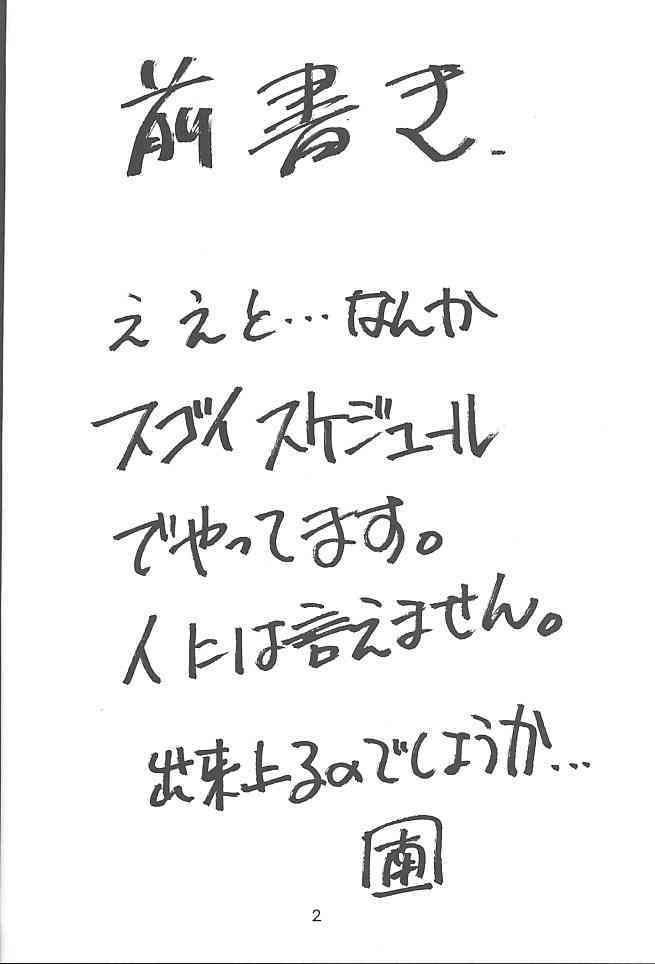 前書き.
ええと…なんか
スゴイスケジュール
でやってます。
人には言えません。
出来上るのでしょうか…
南
2